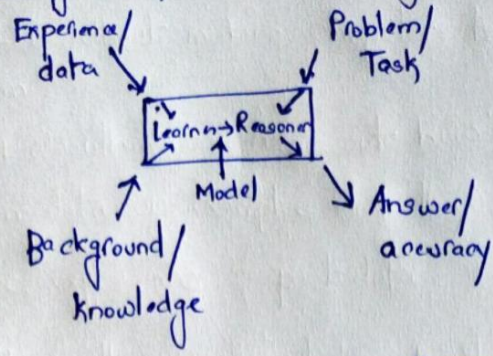 Experience/
data
Problem/
Task
Learner→Reasoner
Model
Background/
knowledge
Answer/
accuracy